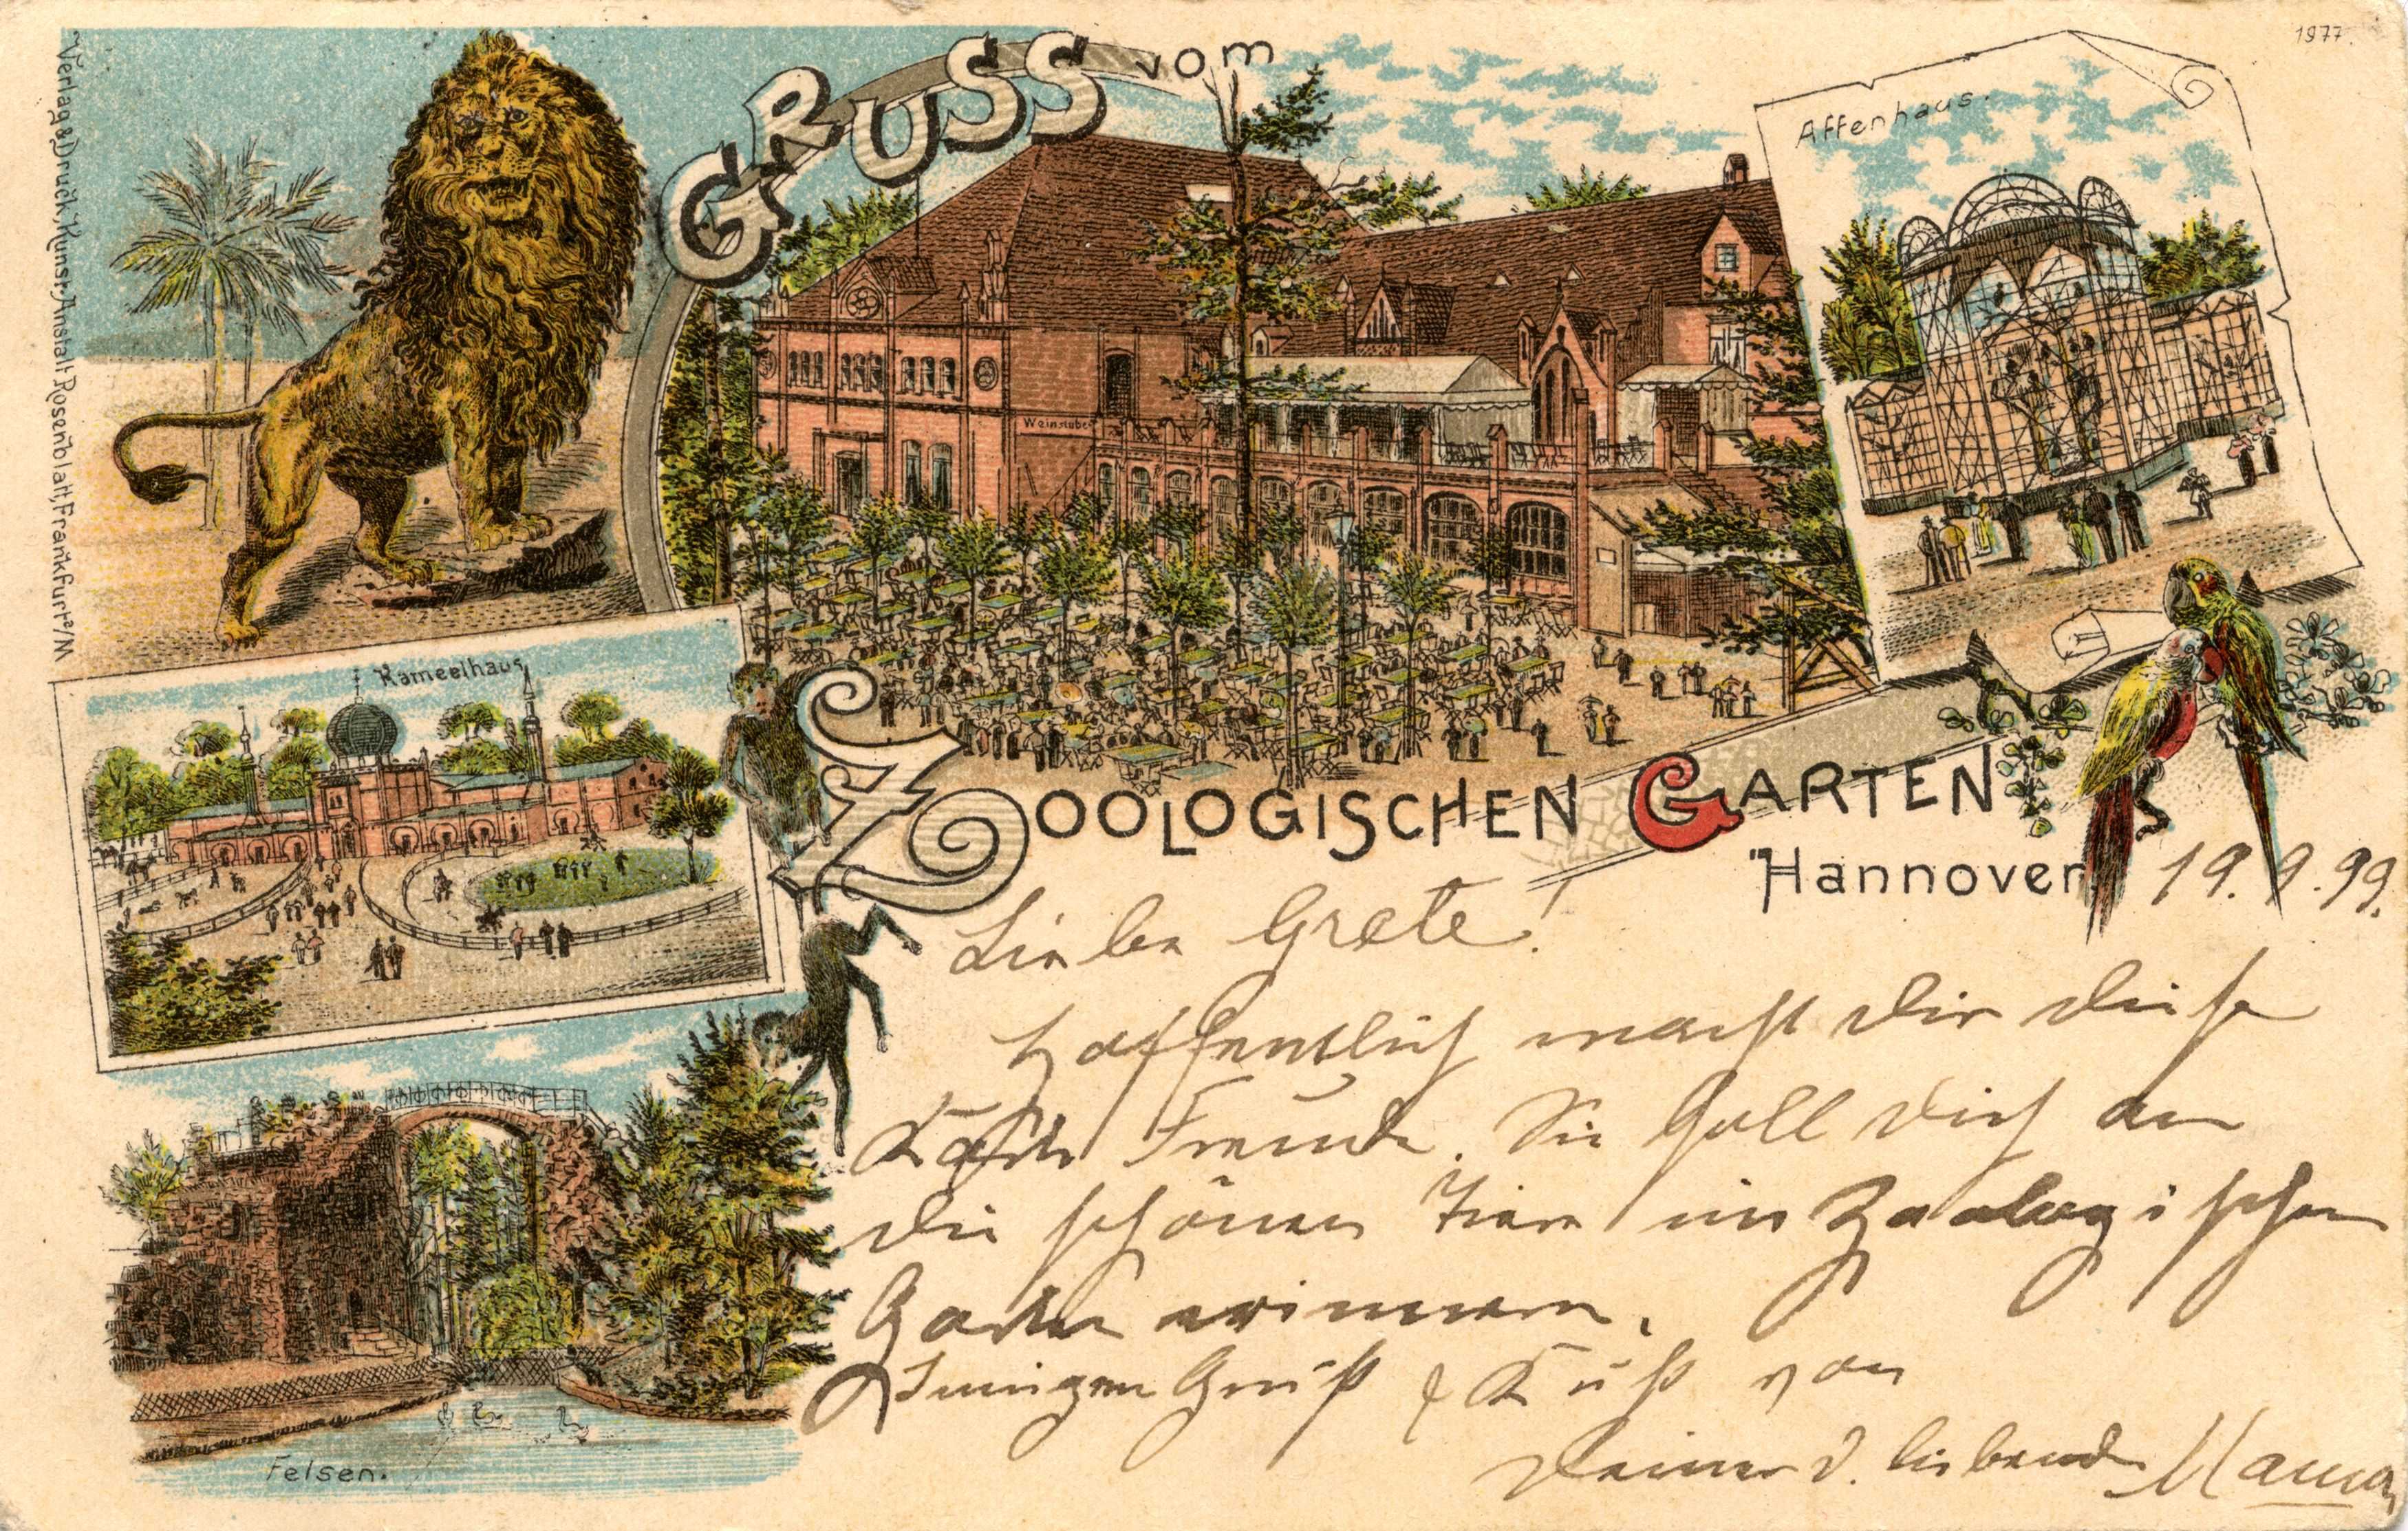 1977.
GRUSS vom
Affenhaus.
Verlag & Druck, Kunst-Anstalt Rosenblatt, Frankfurt a/M
Weinstube
Kameelhaus
ZOOLOGISCHEN GARTEN
Hannover
19. 9. 99.
Liebe Grete!
Hoffentlich macht dir diese
Karte Freude. Sie soll dich an
die schönen Tiere im Zoologischen
Garten erinnern.
Innigen Gruß & Kuß von
Deiner d. liebend. Mama
Felsen.